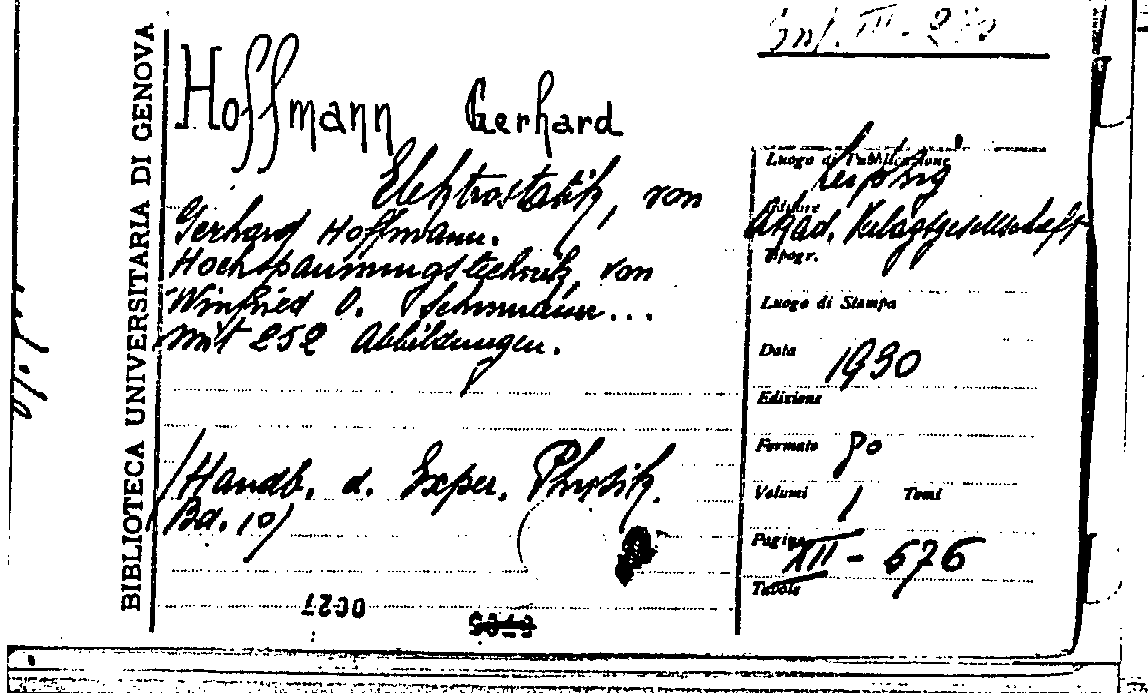 BIBLIOTECA UNIVERSITARIA DI GENOVA
Hoffmann Gerhard
Elektrostatik, von
Gerhard Hoffmann.
Hochspannungstechnik, von
Winfried O. Schumann...
mit 252 Abbildungen.
/Handb. d. Exper. Physik.
Bd. 10/
III -
Luogo di Pubblicazione
Leipzig
Editore
Akad. Verlagsgesellschaft
Tipogr.
Luogo di Stampa
Data 1930
Edizione
Formato 8o
Volumi 1 Tomi
Pagine XII - 676
Tavole